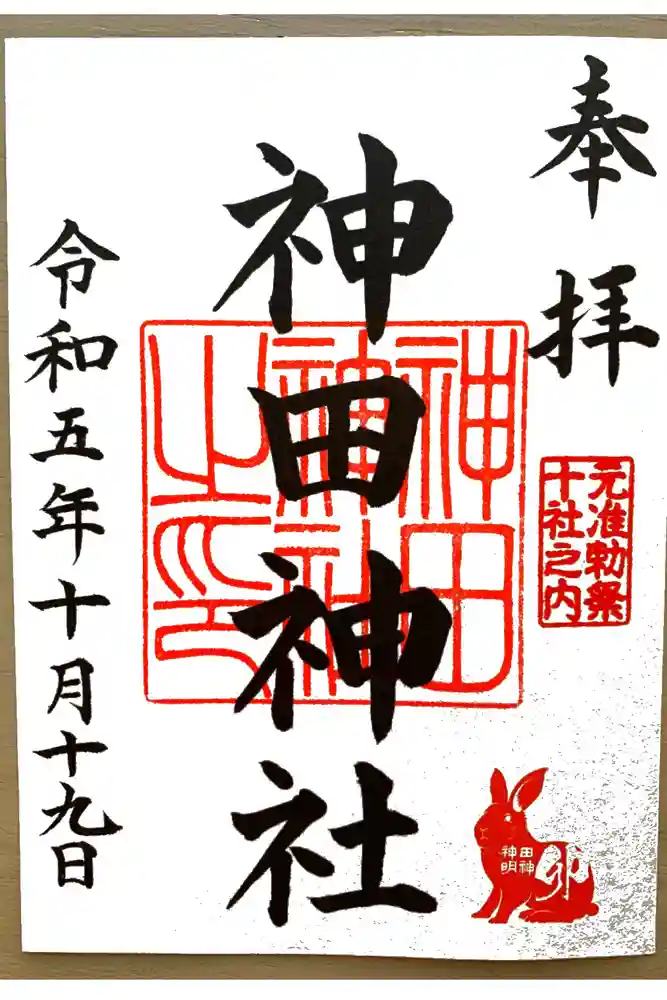 奉拝
元准勅祭
十社之内
神田神社
神田
神社
之印
令和五年十月十九日
田神
神明